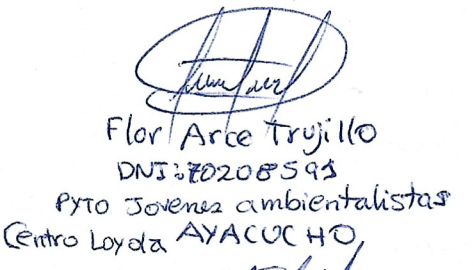 Flor Arce Trujillo
DNI: 70208591
PYTO Jovenes ambientalistas
Centro Loyola AYACUCHO